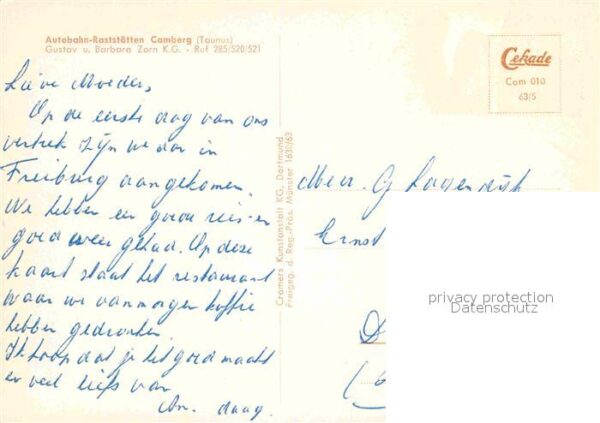 Autobahn-Raststätten Camberg (Taunus)
Gustav u. Barbara Zorn K.G. - Ruf 285/520/521
Cekade
Cam 010
63/5
Lieve Moeder,
Op de eerste dag van ons
vertrek zijn we dan in
Freiburg aangekomen.
We hebben een goede reis en
goed weer gehad. Op deze
kaart staat het restaurant
waar we vanmorgen koffie
hebben gedronken
Ik hoop dat je het goed maakt
en veel liefs van
An. daag.
Cramers Kunstanstalt KG, Dortmund
Freigeg. d. Reg.-Präs. Münster 1630/63
Mevr. G Lagendijk
Ernst
D
privacy protection
Datenschutz